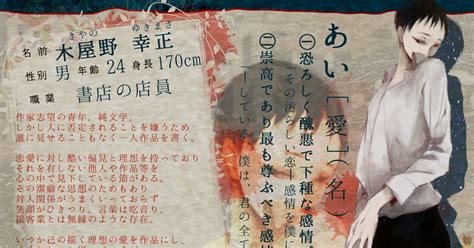 きやの ゆきまさ
名前 木屋野 幸正
性別 男 年齢 24 身長 170cm
職業 書店の店員
作家志望の青年。純文学。
しかし人に否定されることを嫌うため
誰に見せることもなく一人作品を書く。
恋愛に対し酷い偏見と理想を持っており
それを有しない他人や作品等を
心の中で見下している節がある。
その潔癖な思想のためもあり
対人関係がうまくいっておらず
笑顔がひきつり、言葉は吃音り、
接客業とは無縁のような存在。
いつか己の描く理想の愛を作品にし、
あい［愛］（名）
㊀恐ろしく醜悪で下種な感情
その汚らしい恋感情を僕に
㊁崇高であり最も尊ぶべき感
している。僕は、君の全て